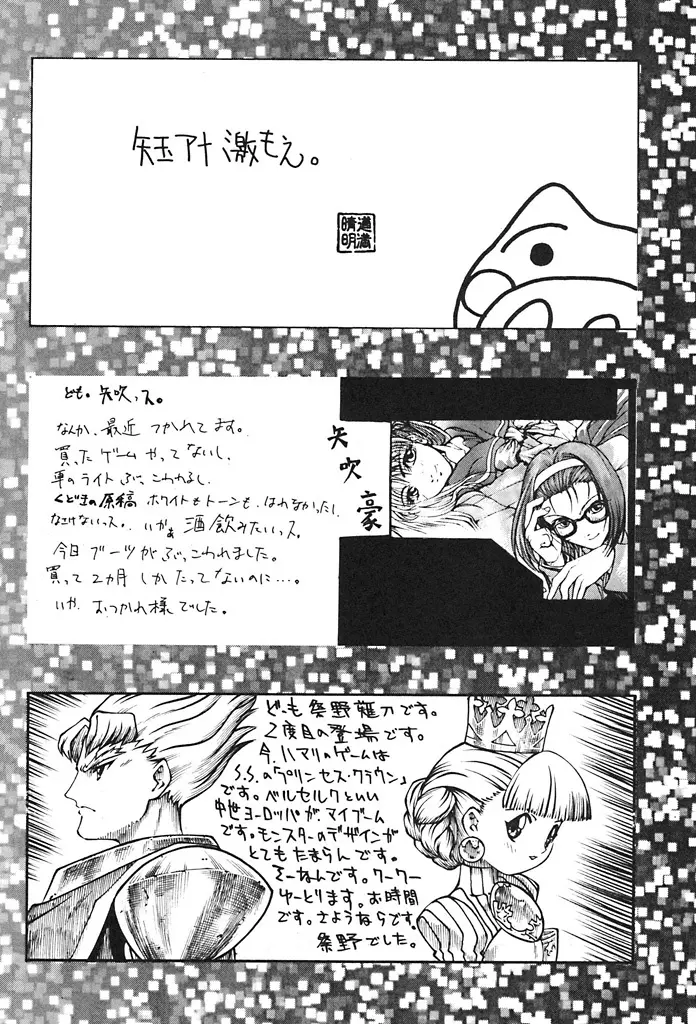 短玉アナ 激もえ。
道満
晴明
ども。矢吹っス。
なんか、最近 つかれてます。
買ったゲーム やってないし、
車のライト ぶっこわれるし、
くど王の原稿 ホワイトもトーンも、はれなかったし、
なさけないっス。いやぁ 酒飲みたいっス。
今日 ブーツが ぶっこわれました。
買って 2カ月 しかたってないのに…。
いや おつかれ様でした。
矢吹豪
ども 祭野薙刀です。
2度目の登場です。
今、ハマリのゲームは
S.S.の「プリンセス・クラウン」
です。ベルセルクといい
中世ヨーロッパが、マイブーム
です。モンスターのデザインが
とてもたまらんです。
そーなんです。クークー
ゆーとります。お時間
です。さようならです。
祭野でした。